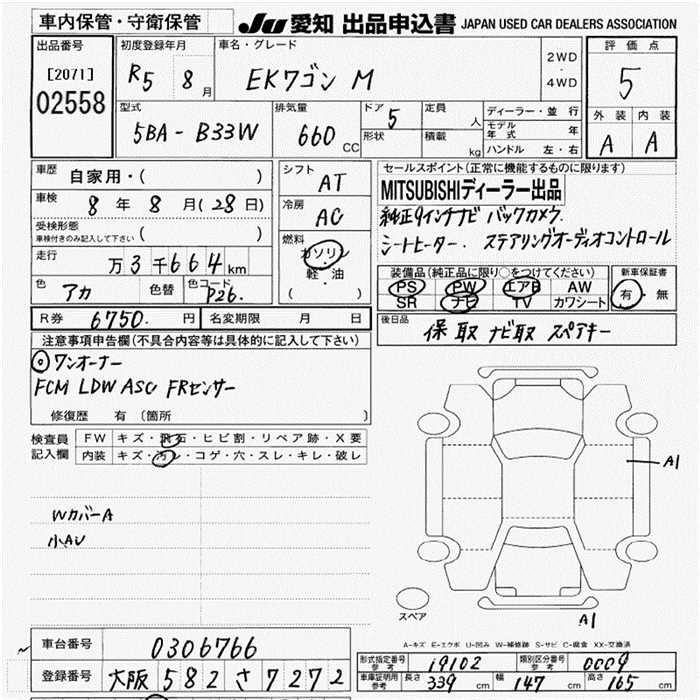 車内保管・守衛保管
JU 愛知 出品申込書 JAPAN USED CAR DEALERS ASSOCIATION
出品番号
[2071]
02558
初度登録年月
R5 8月
車名・グレード
EKワゴン M
2WD
・
4WD
評価点
5
外装 内装
A A
型式
5BA-B33W
排気量
660 CC
ドア 5
形状
定員 人
積載 kg
ディーラー・並行
モデル年式 年
ハンドル 左・右
車歴 自家用・( )
車検 8年8月(28日)
受検形態
車検付きのみ記入して下さい ( )
走行 万3千664km
色 アカ 色替 色コード P26.
シフト
AT
冷房
AC
燃料
ガソリン
軽・油
( )
セールスポイント(正常に機能するものに限ります)
MITSUBISHIディーラー出品
純正9インチナビ バックカメラ.
シートヒーター. ステアリングオーディオコントロール
装備品(純正品に限り○をつけてください)
PS PW エアB AW
SR ナビ TV カワシート
新車保証書
有・無
R券 6750.円 名変期限 月 日
後日品
保取 ナビ取 スペアキー
注意事項申告欄(不具合内容等は具体的に記入して下さい)
◎ワンオーナー
FCM LDW ASC FRセンサー
修復歴 有 (箇所 )
検査員記入欄
FW キズ・飛石・ヒビ割・リペア跡・X要
内装 キズ・汚レ・コゲ・穴・スレ・キレ・破レ
WカバーA
小AU
A1
スペア
A1
A-キズ E-エクボ U-凹み W-補修跡 S-サビ C-腐食 XX-交換済
車台番号 0306766
登録番号 大阪 582 さ 7272
形式指定番号参考 19102 類別区分番号参考 0009
車庫証明用参考 長さ 339 cm 幅 147 cm 高さ 165 cm